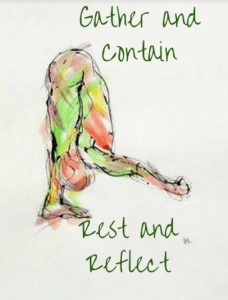 Gather and
Contain
Rest and
Reflect